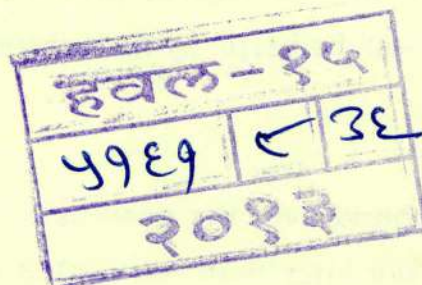 हवल - १५
५१६१ ८ ३६
२०१३